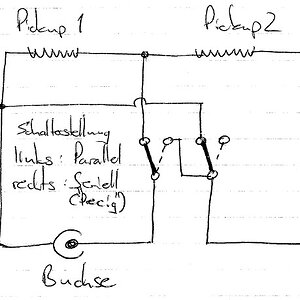 Pickup 1
Pickup 2
Schalterstellung
links : Parallel
rechts : Seriell
Buchse